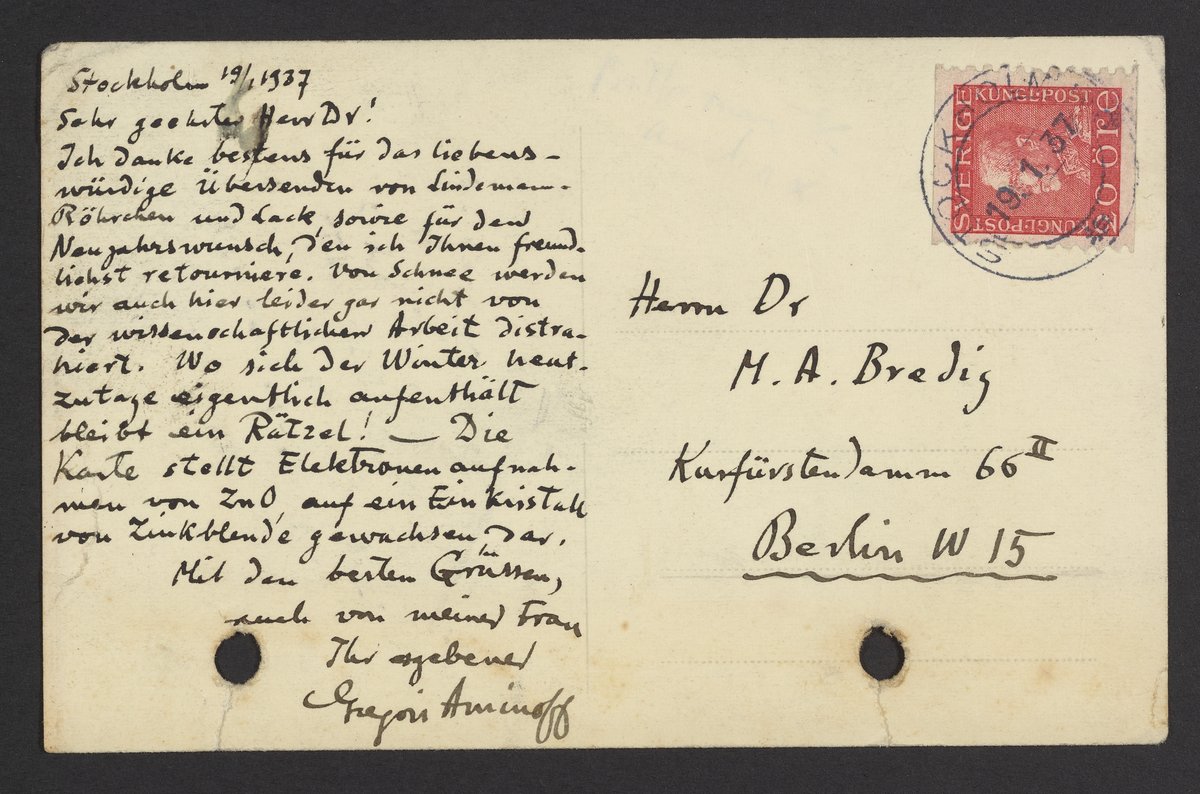 Stockholm 19/1 1937
Sehr geehrter Herr Dr!
Ich danke bestens für das liebens-
würdige Übersenden von Lindemann-
Röhrchen und Lack, sowie für den
Neujahrswunsch, den ich Ihnen freund-
lichst retourniere. Von Schnee werden
wir auch hier leider gar nicht von
der wissenschaftlichen Arbeit distra-
hiert. Wo sich der Winter heut-
zutage eigentlich aufenthält
bleibt ein Rätzel! — Die
Karte stellt Elektronenaufnah-
men von ZnO, auf ein Einkristall
von Zinkblende gewachsen, dar.
Mit den besten Grüssen,
auch von meiner Frau
Ihr ergebener
Gregori Aminoff
SVERIGE
KUNGL. POST
KUNGL. POST
20 öre
STOCKHOLM
19.1.37
Herrn Dr
M. A. Bredig
Kurfürstendamm 66 II
Berlin W 15